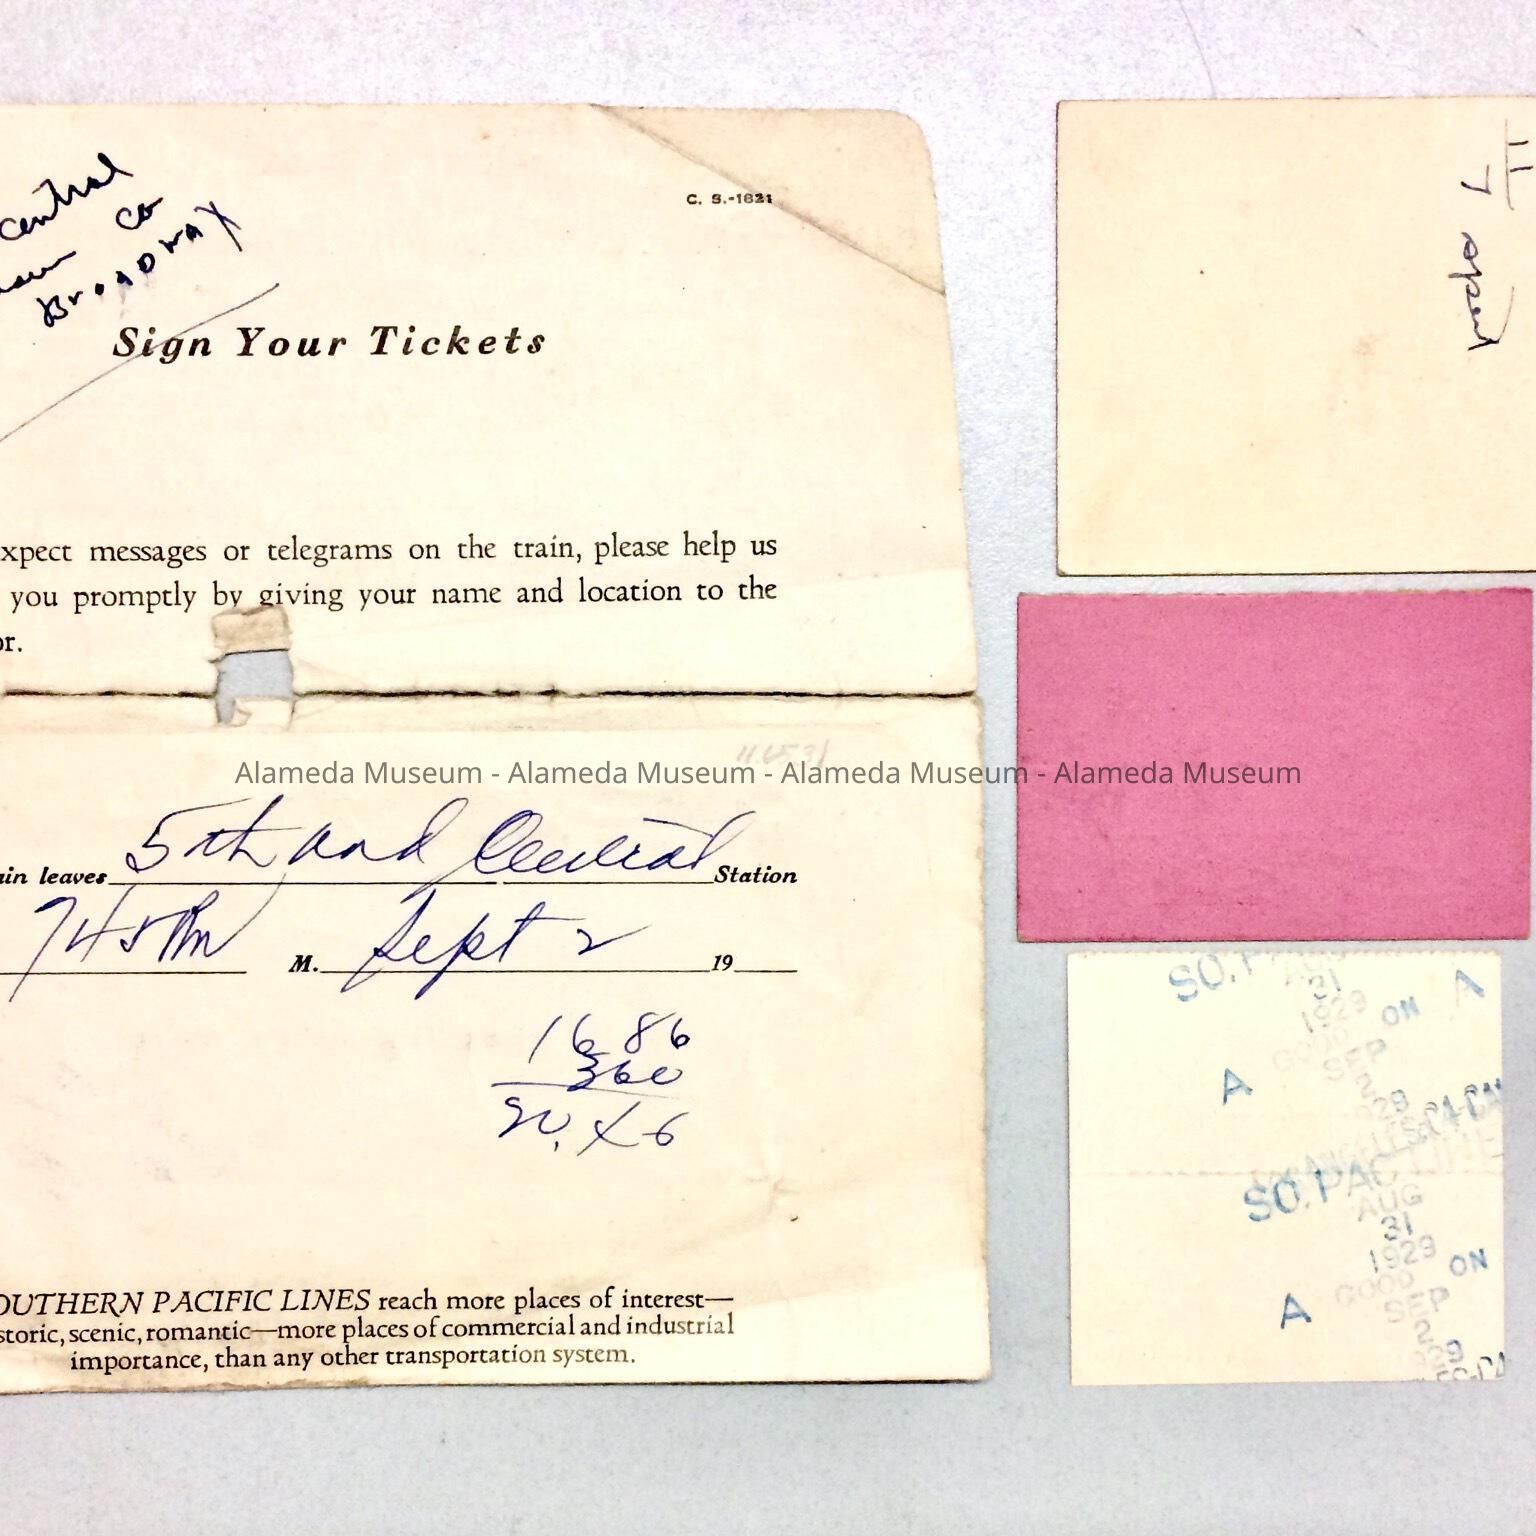 Central
Co
Broadway
C. S.-1821
Sign Your Tickets
xpect messages or telegrams on the train, please help us
you promptly by giving your name and location to the
or.
Alameda Museum - Alameda Museum - Alameda Museum - Alameda Museum
ain leaves 5th and Central Station
745 Pm M. Sept 2 19
16 86
360
20.46
OUTHERN PACIFIC LINES reach more places of interest—
storic, scenic, romantic—more places of commercial and industrial
importance, than any other transportation system.
11
7
upper
SO.P
AUG
31
1929
ON
A
GOOD
SEP
2
A
29
LOS ANGELES-CA
SO. PAC LINE
AUG
31
1929
ON
GOOD
SEP
2
A
29